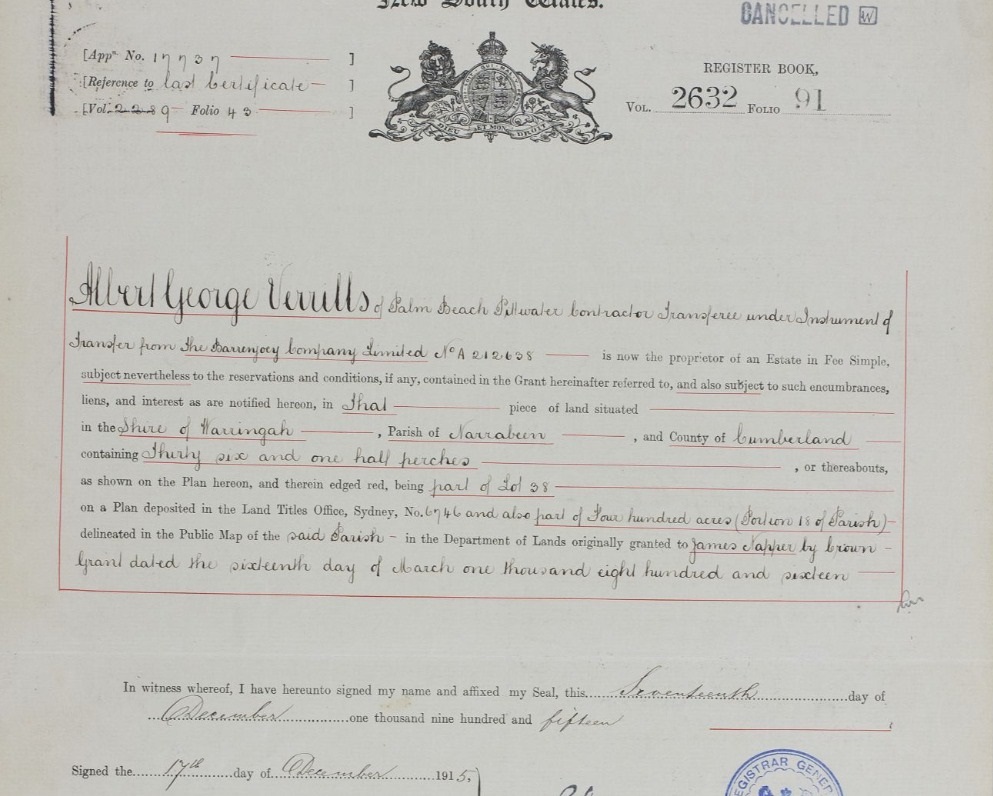 New South Wales.
CANCELLED W
[Appn. No. 17737 ]
[Reference to last Certificate ]
[Vol. 2289 Folio 43 ]
DIEU ET MON DROIT
REGISTER BOOK,
VOL. 2632 FOLIO 91
Albert George Verrills of Palm Beach Pittwater Contractor Transferee under Instrument of
Transfer from The Barrenjoey Company Limited No A 212638 is now the proprietor of an Estate in Fee Simple,
subject nevertheless to the reservations and conditions, if any, contained in the Grant hereinafter referred to, and also subject to such encumbrances,
liens, and interest as are notified hereon, in That piece of land situated
in the Shire of Warringah , Parish of Narrabeen , and County of Cumberland
containing Thirty six and one half perches , or thereabouts,
as shown on the Plan hereon, and therein edged red, being part of Lot 38
on a Plan deposited in the Land Titles Office, Sydney, No. 6746 and also part of Four hundred acres (Portion 18 of Parish)
delineated in the Public Map of the said Parish - in the Department of Lands originally granted to James Napper by Crown -
Grant dated the sixteenth day of March one thousand eight hundred and sixteen
In witness whereof, I have hereunto signed my name and affixed my Seal, this Seventeenth day of
December one thousand nine hundred and fifteen
Signed the 17th day of December 1915,
REGISTRAR GENER